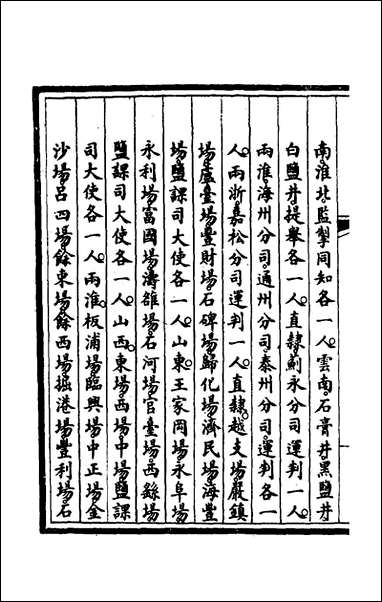 南淮北監掣同知各一人雲南石膏井黑鹽井
白鹽井提舉各一人直隸薊永分司運判一人
兩淮海州分司通州分司泰州分司運判各一
人兩浙嘉松分司運判一人直隸越支場嚴鎮
場蘆臺場豐財場石碑場歸化場濟民場海豐
場鹽課司大使各一人山東王家岡場永阜場
永利場富國場濤雒場石河場官臺場西繇場
鹽課司大使各一人山西東場西場中場鹽課
司大使各一人兩淮板浦場臨興場中正場金
沙場呂四場餘東場餘西場掘港場豐利場石